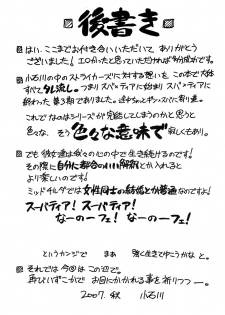 後書き
はい、ここまでお付き合いいただいて、ありがとう
ございました! エロかったと思っていただければ多分成功です。
小石川の中のストライカーズに対する想いを、この本で大体
すべてタレ流し。つまりスバ×ティアに始まりスバ×ティアに
終わった第3期でありました。途中ちょとギンスバに寄り道。
これでなのはシリーズが完結してしまうのかと思うと
色々な、そう色々な意味で寂しくもあり。
でも彼女達は我々の心の中で生き続けるのです!
その際に自分に都合のいい解釈とか入れると
より楽しいのです!
ミッドチルダでは女性同士の結婚とか普通なのですよ!
スーパティア! スーパティア!
なーのーフェ! なーのーフェ!
というカンジで まぁ 強く生きてゆこうかな と。
それでは今回はこの辺で。
再びいずこかで お目にかかれる事を祈りつつ ー。
2007. 秋 小石川